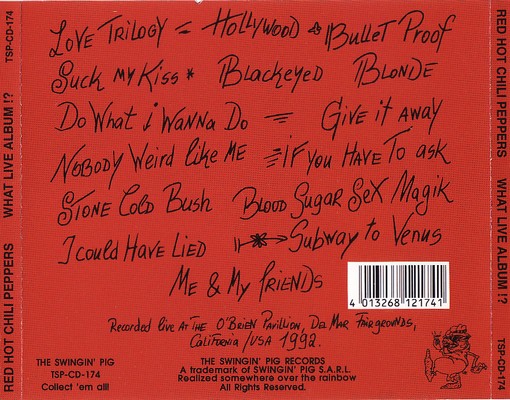 LOVE TRILOGY = HOLLYWOOD BULLET PROOF
SUCK MY KISS * BLACKEYED BLONDE
DO WHAT i WANNA DO = GIVE iT AWAY
NOBODY WEIRD LIKE ME = iF YOU HAVE TO ASK
STONE COLD BUSH BLOOD SUGAR SEX MAGIK
I COULD HAVE LIED SUBWAY TO VENUS
ME & MY FRIENDS
4 013268 121741
RECORDED LIVE AT THE O'BRIEN PAVILLION, DEL MAR FAIRGROUNDS,
CALIFORNIA / USA 1992.
THE SWINGIN' PIG
TSP-CD-174
Collect 'em all!
THE SWINGIN' PIG RECORDS
A trademark of SWINGIN' PIG S.A.R.L.
Realized somewhere over the rainbow
All Rights Reserved.
RED HOT CHILI PEPPERS WHAT LIVE ALBUM !? TSP-CD-174
RED HOT CHILI PEPPERS WHAT LIVE ALBUM !? TSP-CD-174